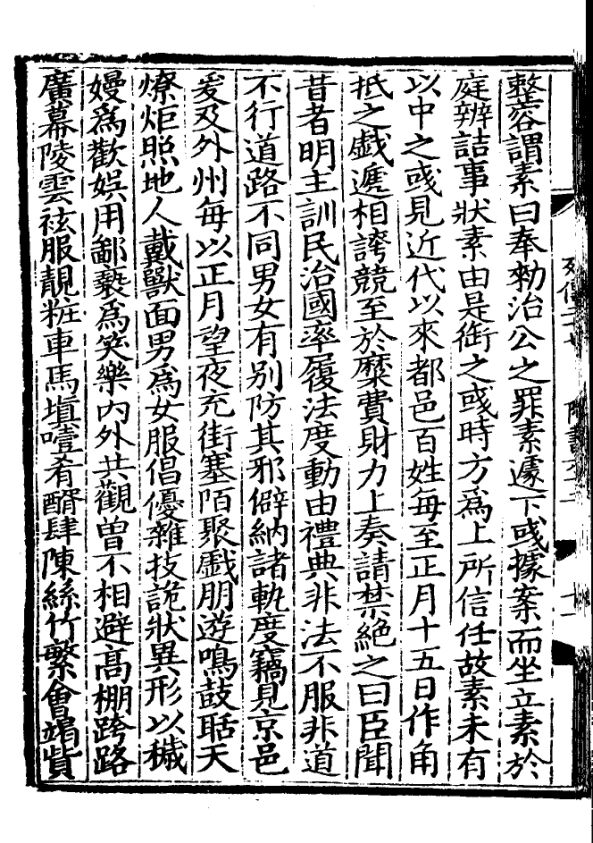 整蓉謂素曰奉勑治公之罪素遽下彧據案而坐立素於
庭辨詰事狀素由是銜之彧時方爲上所信任故素未有
以中之彧見近代以來都邑百姓每至正月十五日作角
抵之戱遞相誇競至於糜費財力上奏請禁絕之曰臣聞
昔者明主訓民治國率履法度動由禮典非法不服非道
不行道路不同男女有別防其邪僻納諸軌度竊見京邑
爰及外州每以正月望夜充街塞陌聚戱朋遊鳴鼓聒天
燎炬照地人戴獸面男爲女服倡優雜技詭狀異形以穢
嫚爲歡娛用鄙褻爲笑樂內外共觀曾不相避高棚跨路
廣幕陵雲袨服靚粧車馬塡噎肴醑肆陳絲竹繁會竭貲